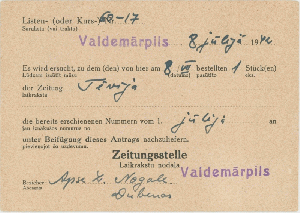 Listen- (oder Kurs-) 60-17
Saraksta (vai trakta)
Valdemārpils 8 jūlijā 1942
Es wird ersucht, zu dem (den) von hier am 8 VII bestellten 1 Stück(en)
Lūdzam izdarīt mūsu (datums) pasūtīto eks.
der Zeitung Tēvija
laikraksts
die bereits erschienenen Nummern vom 1. jūlijā an
jau iznākušos numurus no
unter Beifügung dieses Antrags nachzuliefern.
pievienojot šo uzdevumu.
Zeitungsstelle
Laikrakstu nodaļa
Valdemārpils
Bezieher Apse Z. Nogale
Abonents
Dubenos